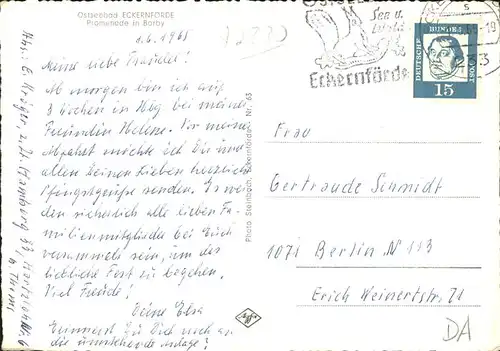 Ostseebad ECKERNFÖRDE
Promenade in Borby
1.6.1965
Meine liebe Traudel!
Ab morgen bin ich auf
3 Wochen in Hbg bei meiner
Freundin Helene. Vor meiner
Abfahrt möchte ich Dir und
allen Deinen Lieben herzliche
Pfingstgrüße senden. Es wer-
den sicherlich alle lieben Fa-
milienmitglieder bei Euch
versammelt sein, um das
liebliche Fest zu begehen.
Viel Freude!
Deine Elsa
Erinnerst Du Dich noch an
die umstehende Anlage?
Photo Steinbach, Eckernförde Nr. 63
See u.
Eckernförde
DEUTSCHE
BUNDESPOST
15
Frau
Gertraude Schmidt
1071 Berlin N 113
Erich Weinertstr. 71
DA